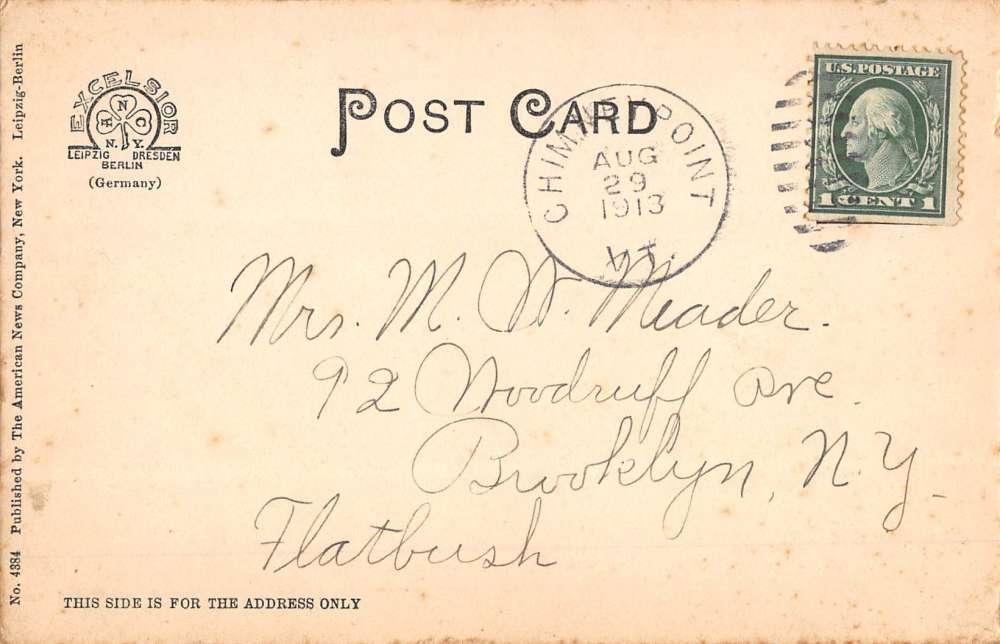 No. 4384 Published by The American News Company, New York. Leipzig-Berlin
EXCELSIOR
A N C
N. Y.
LEIPZIG DRESDEN
BERLIN
(Germany)
POST CARD
CHIMNEY POINT
AUG
29
1913
VT.
U.S. POSTAGE
1 CENT 1
Mrs. M. W. Meader.
92 Woodruff Ave.
Brooklyn, N.Y.
Flatbush
THIS SIDE IS FOR THE ADDRESS ONLY